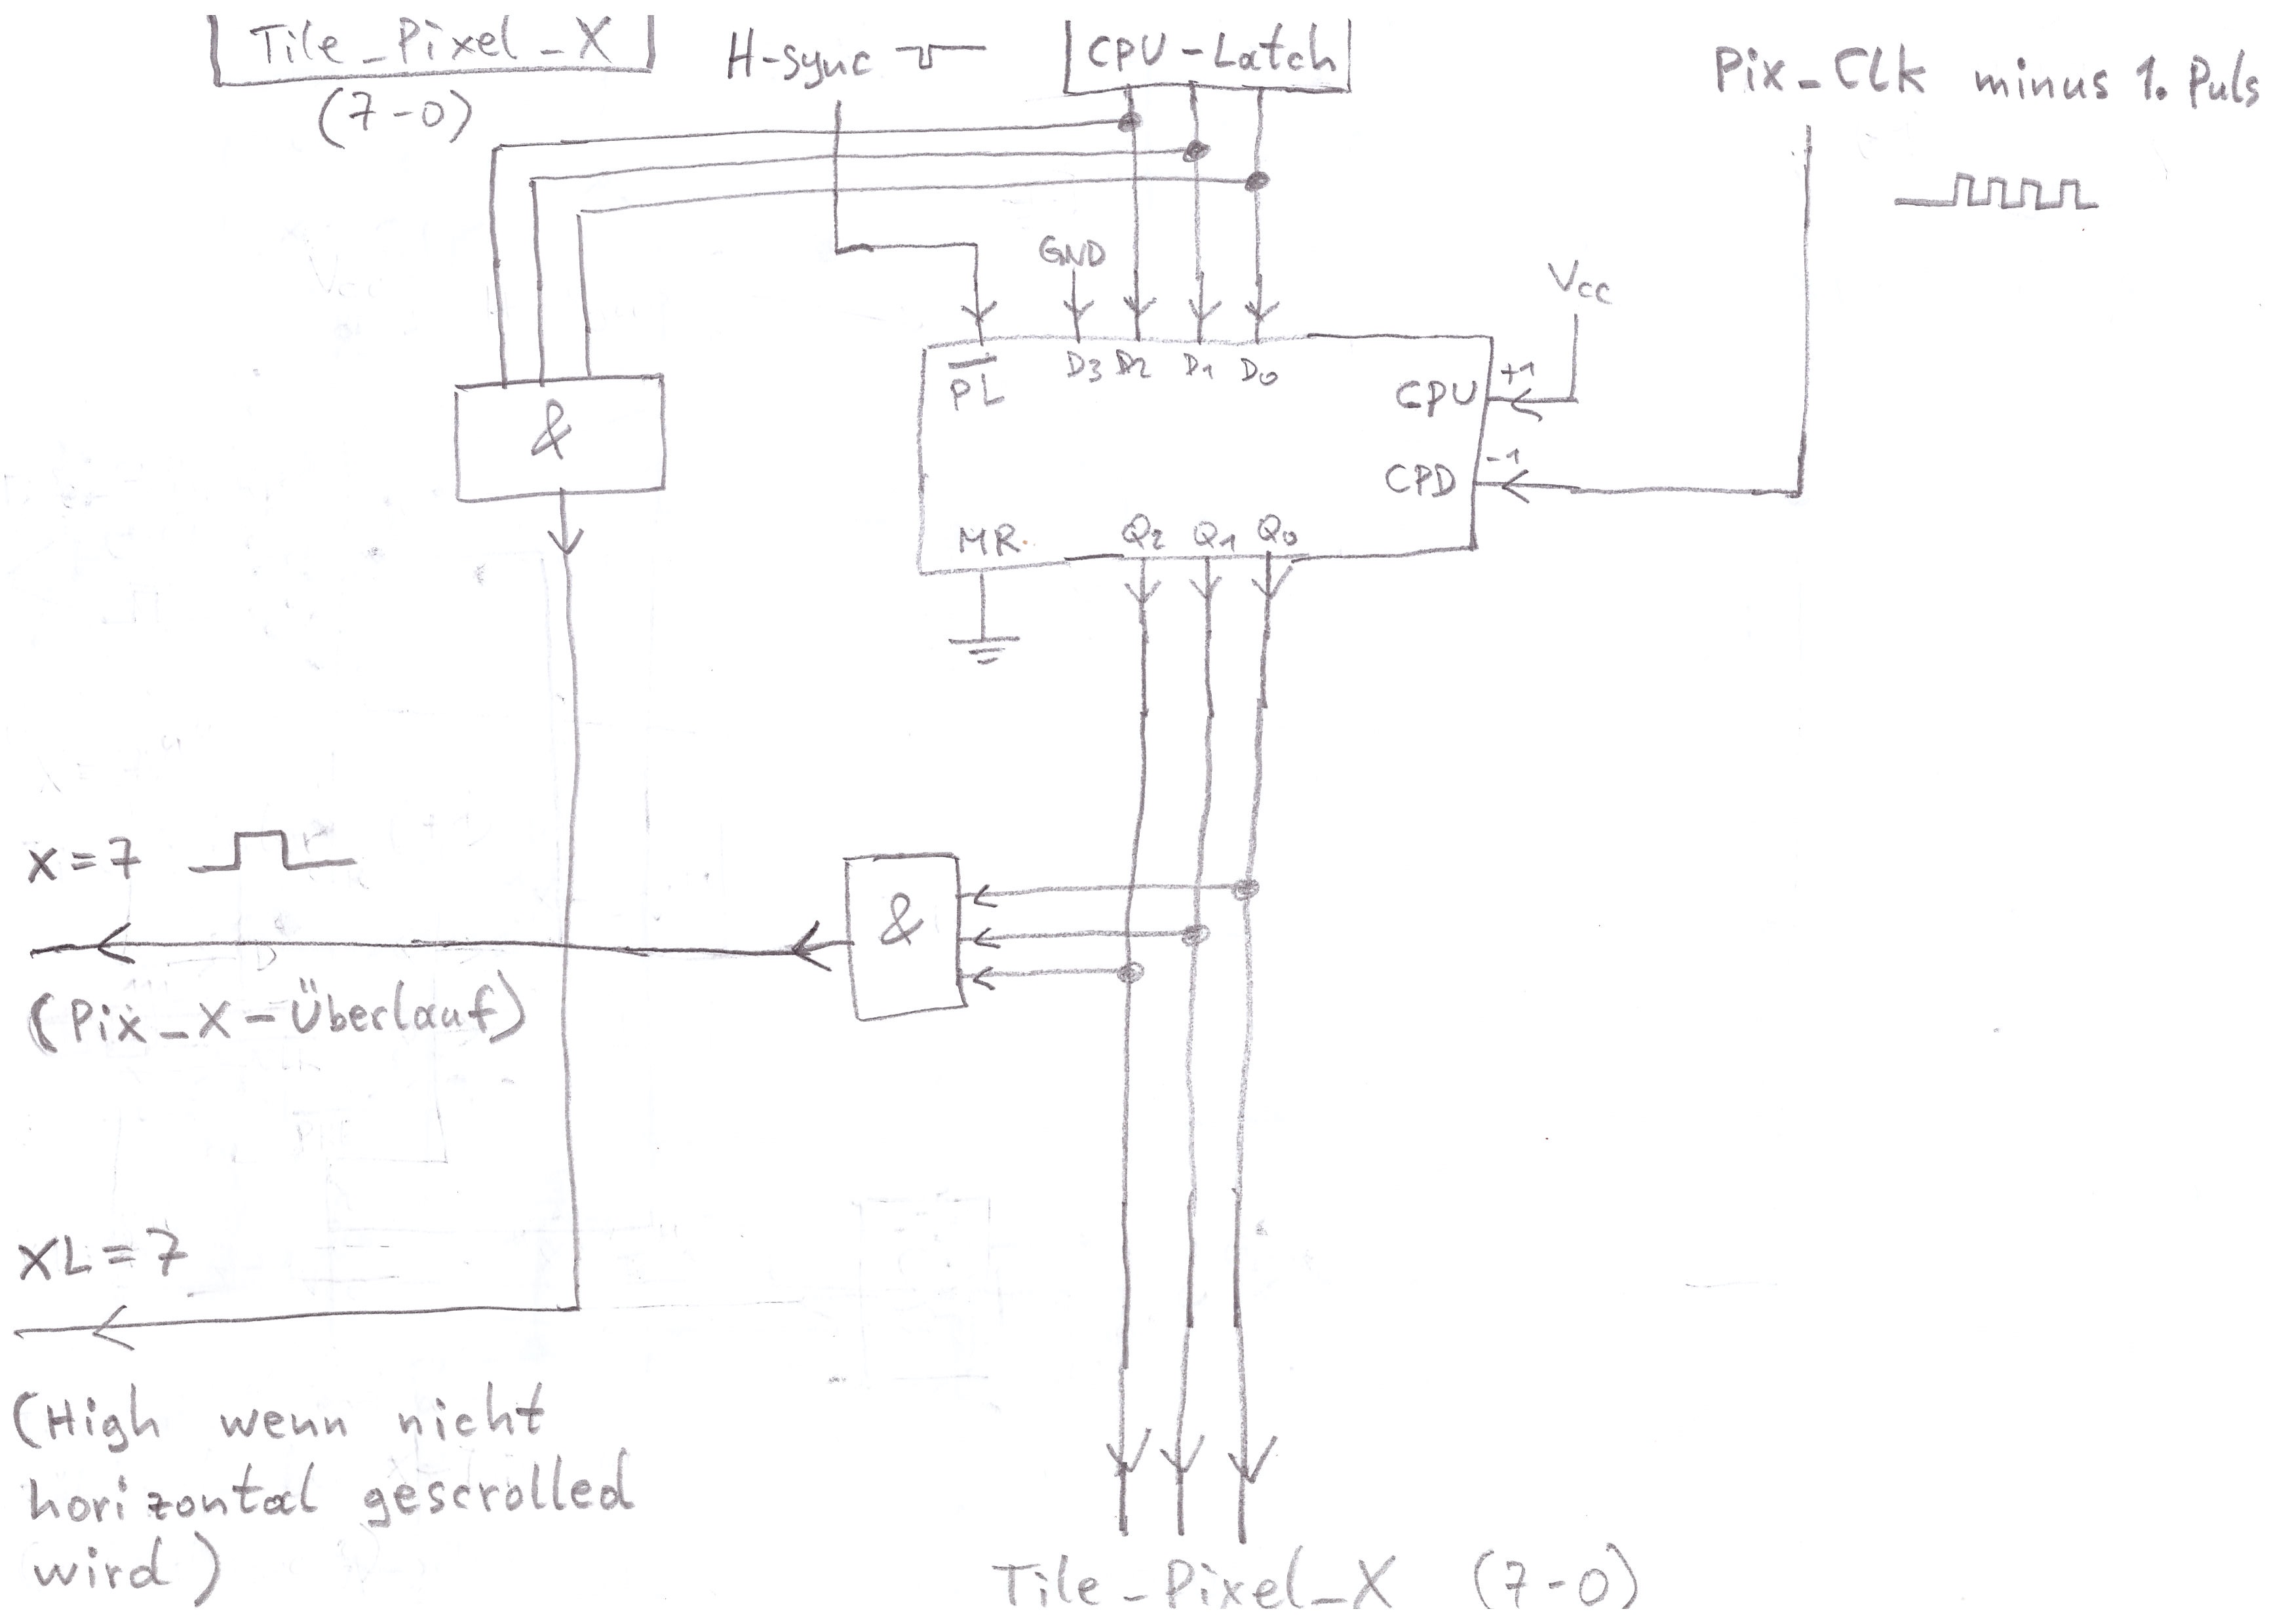 Tile_Pixel_X
(7-0)
H-sync
CPU-Latch
Pix_Clk minus 1. Puls
GND
Vcc
PL
D3 D2 D1 D0
CPU
+1
CPD
-1
MR
Q2 Q1 Q0
&
&
x=7
(Pix_X-Überlauf)
XL=7
(High wenn nicht
horizontal gescrolled
wird)
Tile_Pixel_X (7-0)